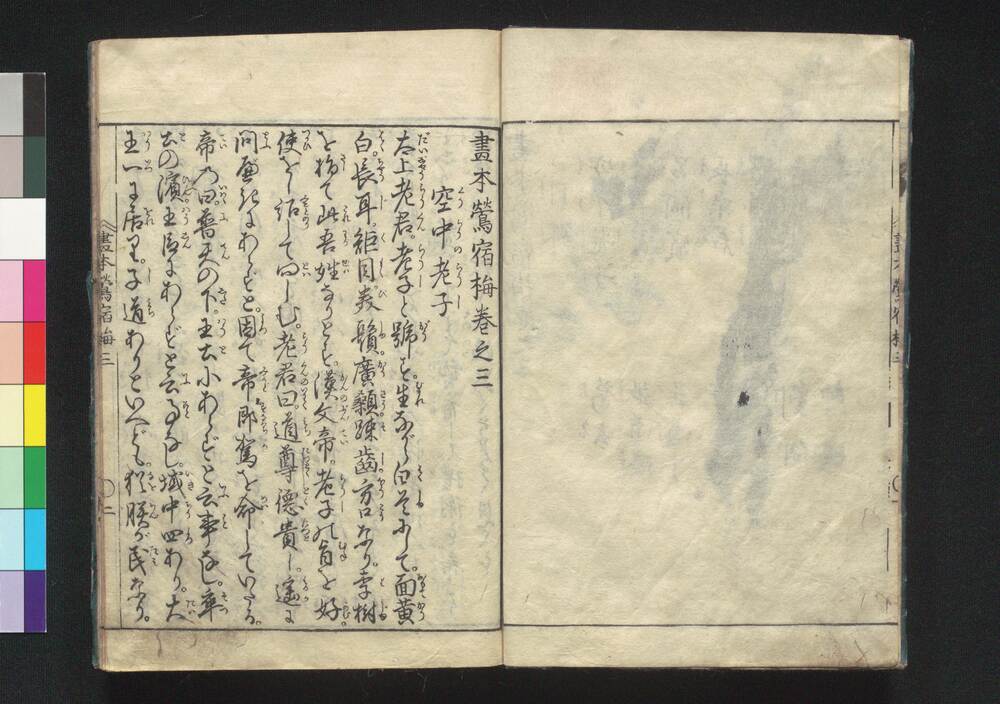 畫本鶯宿梅巻之三
空中老子
太上老君。老子と號す生ながら白首にして。面黄
白。長耳。矩目。美鬚廣顙踈齒方口なり。李樹
を指て此吾姓なりとす。漢文帝。老子の旨を好
使をし詔して問しむ。老君曰道尊德貴し。遥に
問べきにあらずと。因て帝即駕を命していたる。
帝乃曰。普天の下。王土にあらずと云事なし。率
土の濱王臣にあらずと云事なし。域中四あり。大
王一に居り。子道ありといへども。猶朕が民なり。
畫本鶯宿梅三 〇二